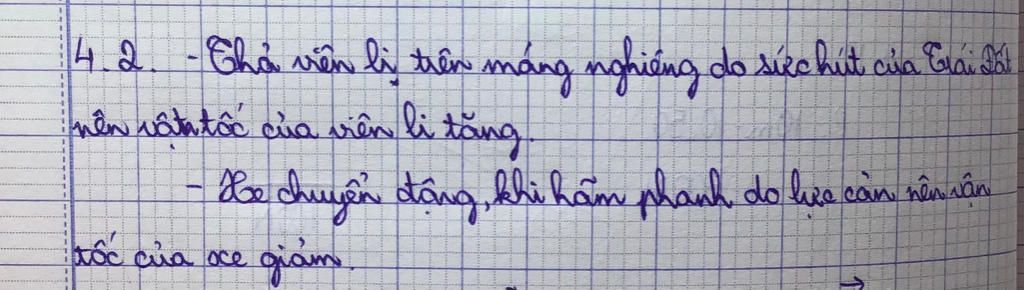 4.2. - Thả viên bi trên máng nghiêng do sức hút của Trái Đất
nên vận tốc của viên bi tăng.
- Xe chuyển động, khi hãm phanh do lực cản nên vận
tốc của xe giảm.